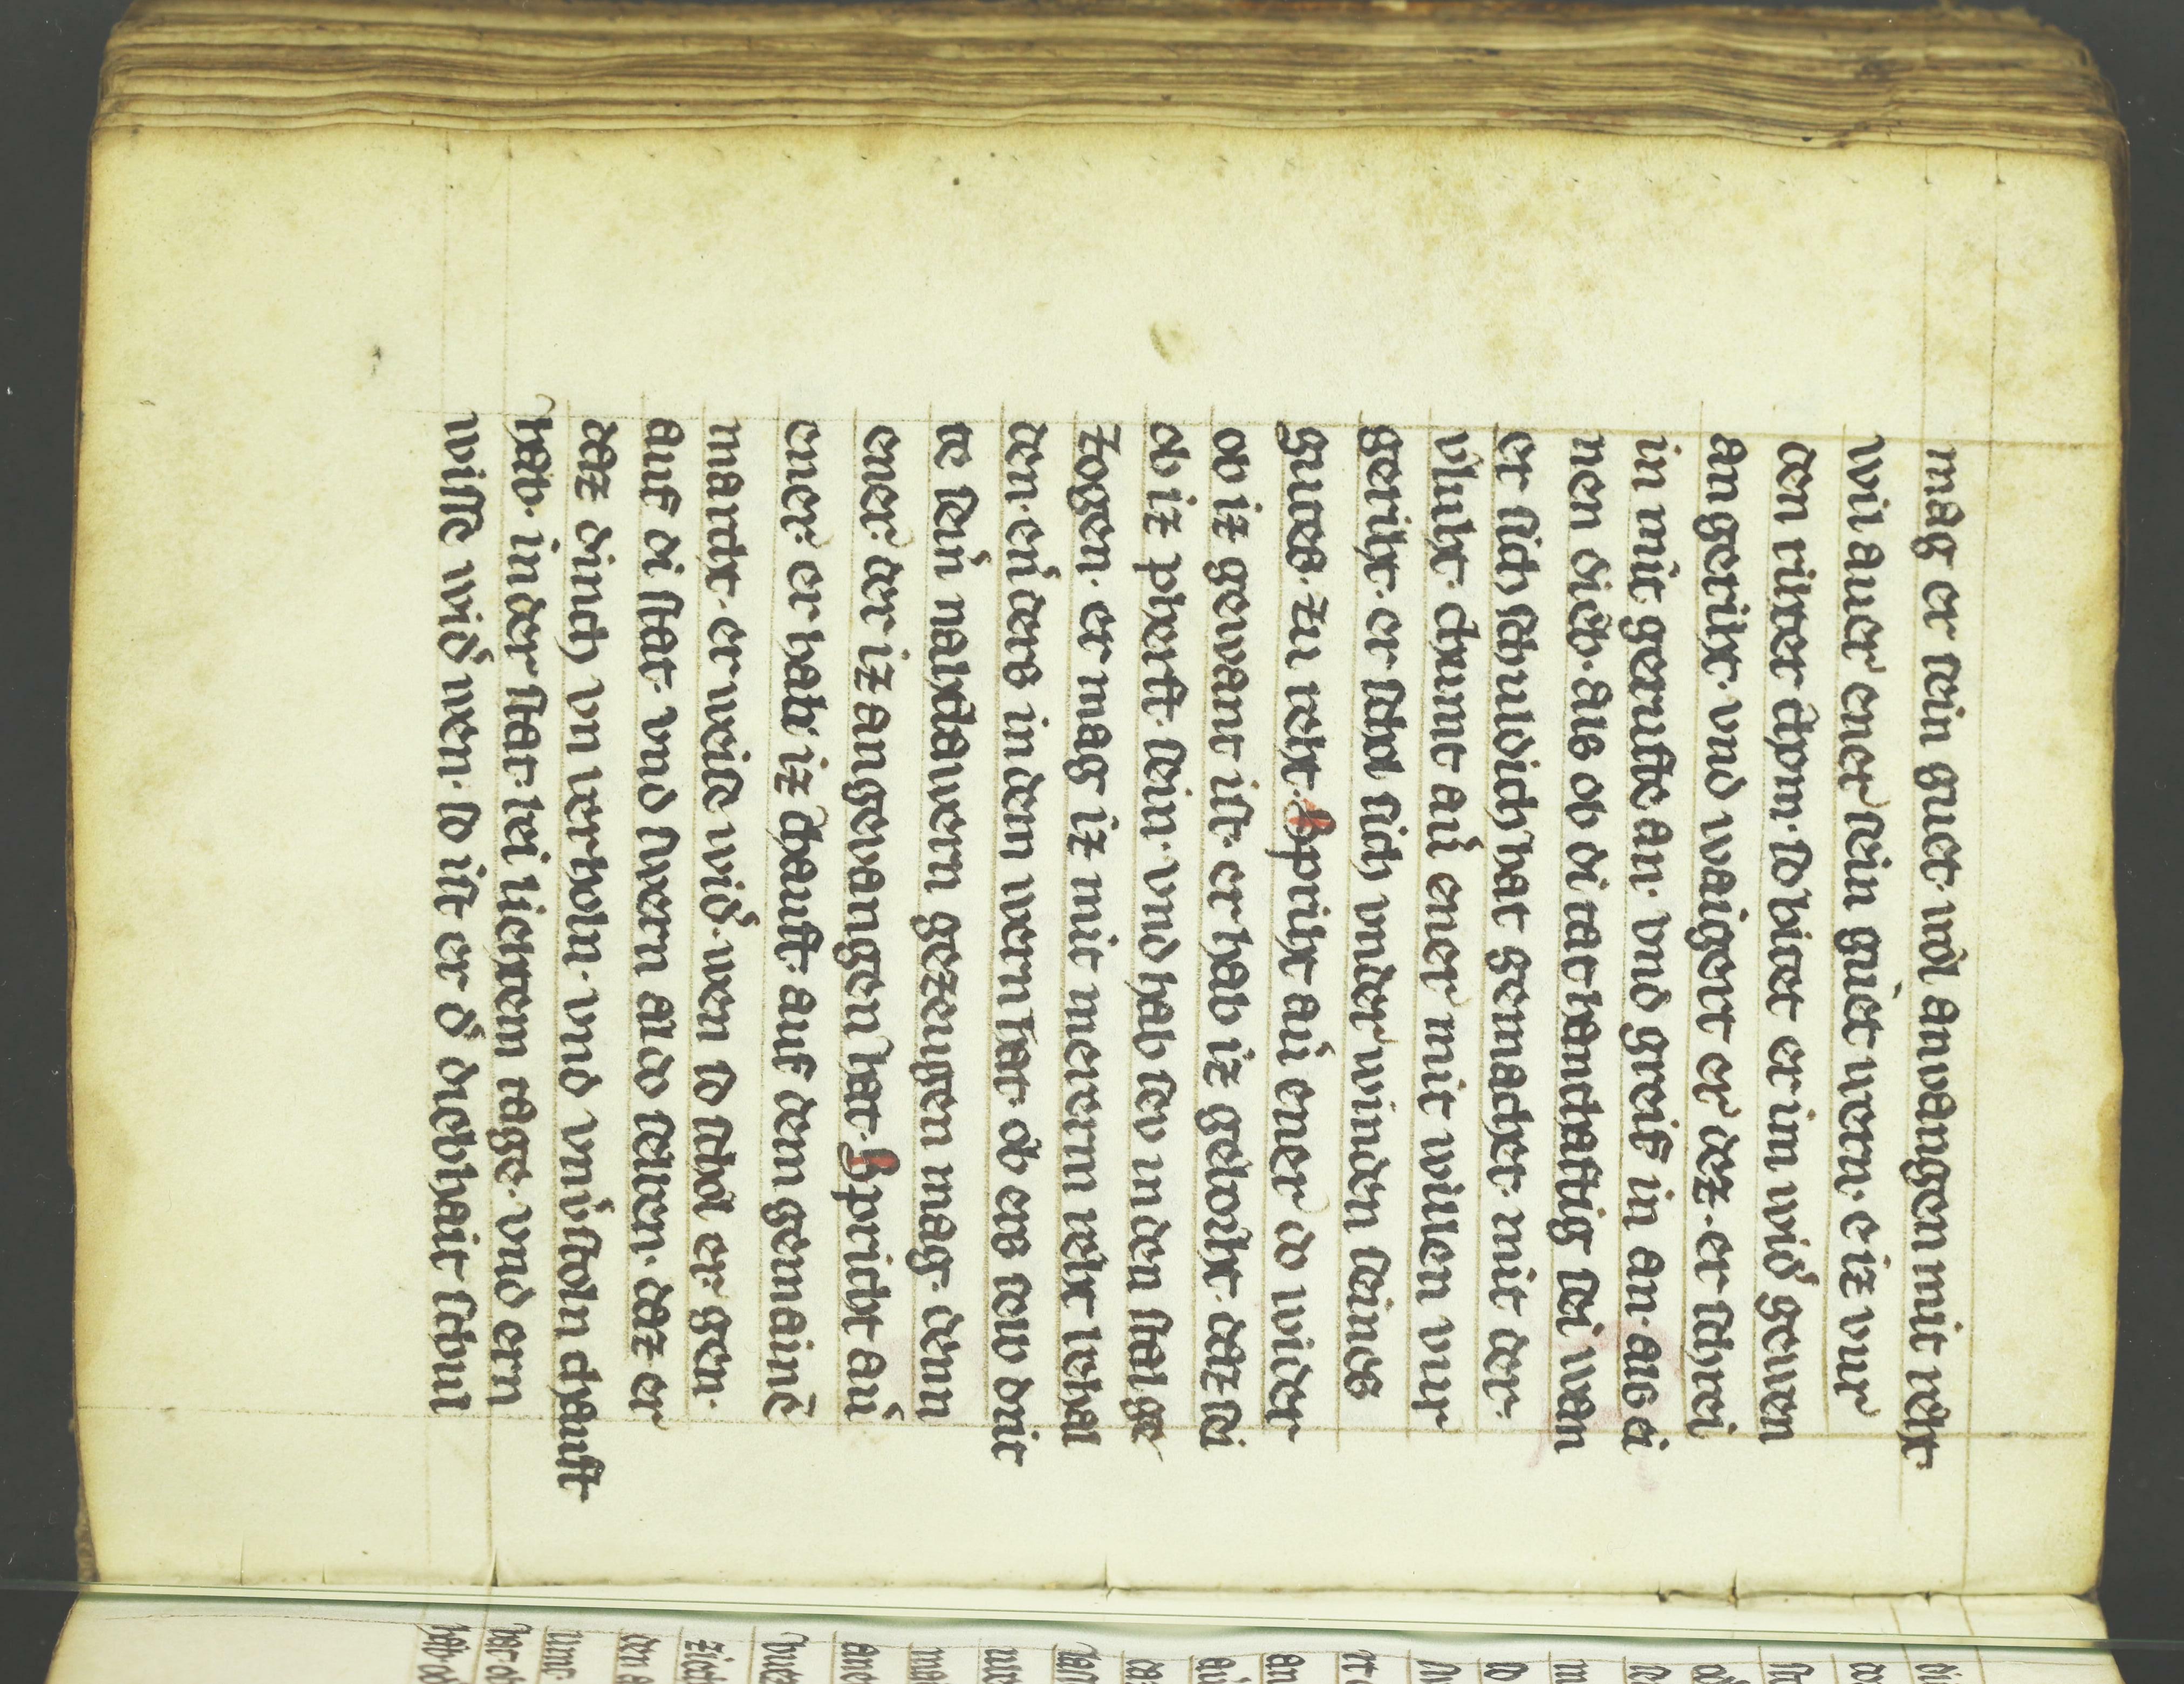 mag er sein guet· wol anvangen mit reht·
wil auer ener sein guet wern· e iz vur
den rihter chom· so bitet er im wiđ gewen
an geriht· vnd waigert er dez· er schrei
in mit gerufte an· vnd greif in an· aus ei
nen dieb· aus ob di tat hanthaftig sei wan
er sich schuldich hat gemachet· mit der·
vluht· chumt aů ener mit willen vur
geriht· er schol sich vnder winden seines
gutes· zu reht· Spriht aů ener do wider
ob iz gewant ist· er hab iz geworht· daz sei
ob iz phert sein· vnd hab sev in den stal ge
zogen· er mag iz mit merern reht behal
den· eňders in dem wern hat· ob ers sewb drit
te sein nahtbawern gezeugen mag· denn
ener· der iz angevangen hat· Spricht aů
ener· er hab iz chauft· auf dem gemainē
marcht· er weise wiđ· wen so schol er gen·
auf di stat· vnd swern also selten· daz er
daz dinch vn verholn· vnd vnůstoln chauft
hab· in der stat· bei liehtem tage· vnd ern
wisse wiđ wen· so ist er đ diebhait schul